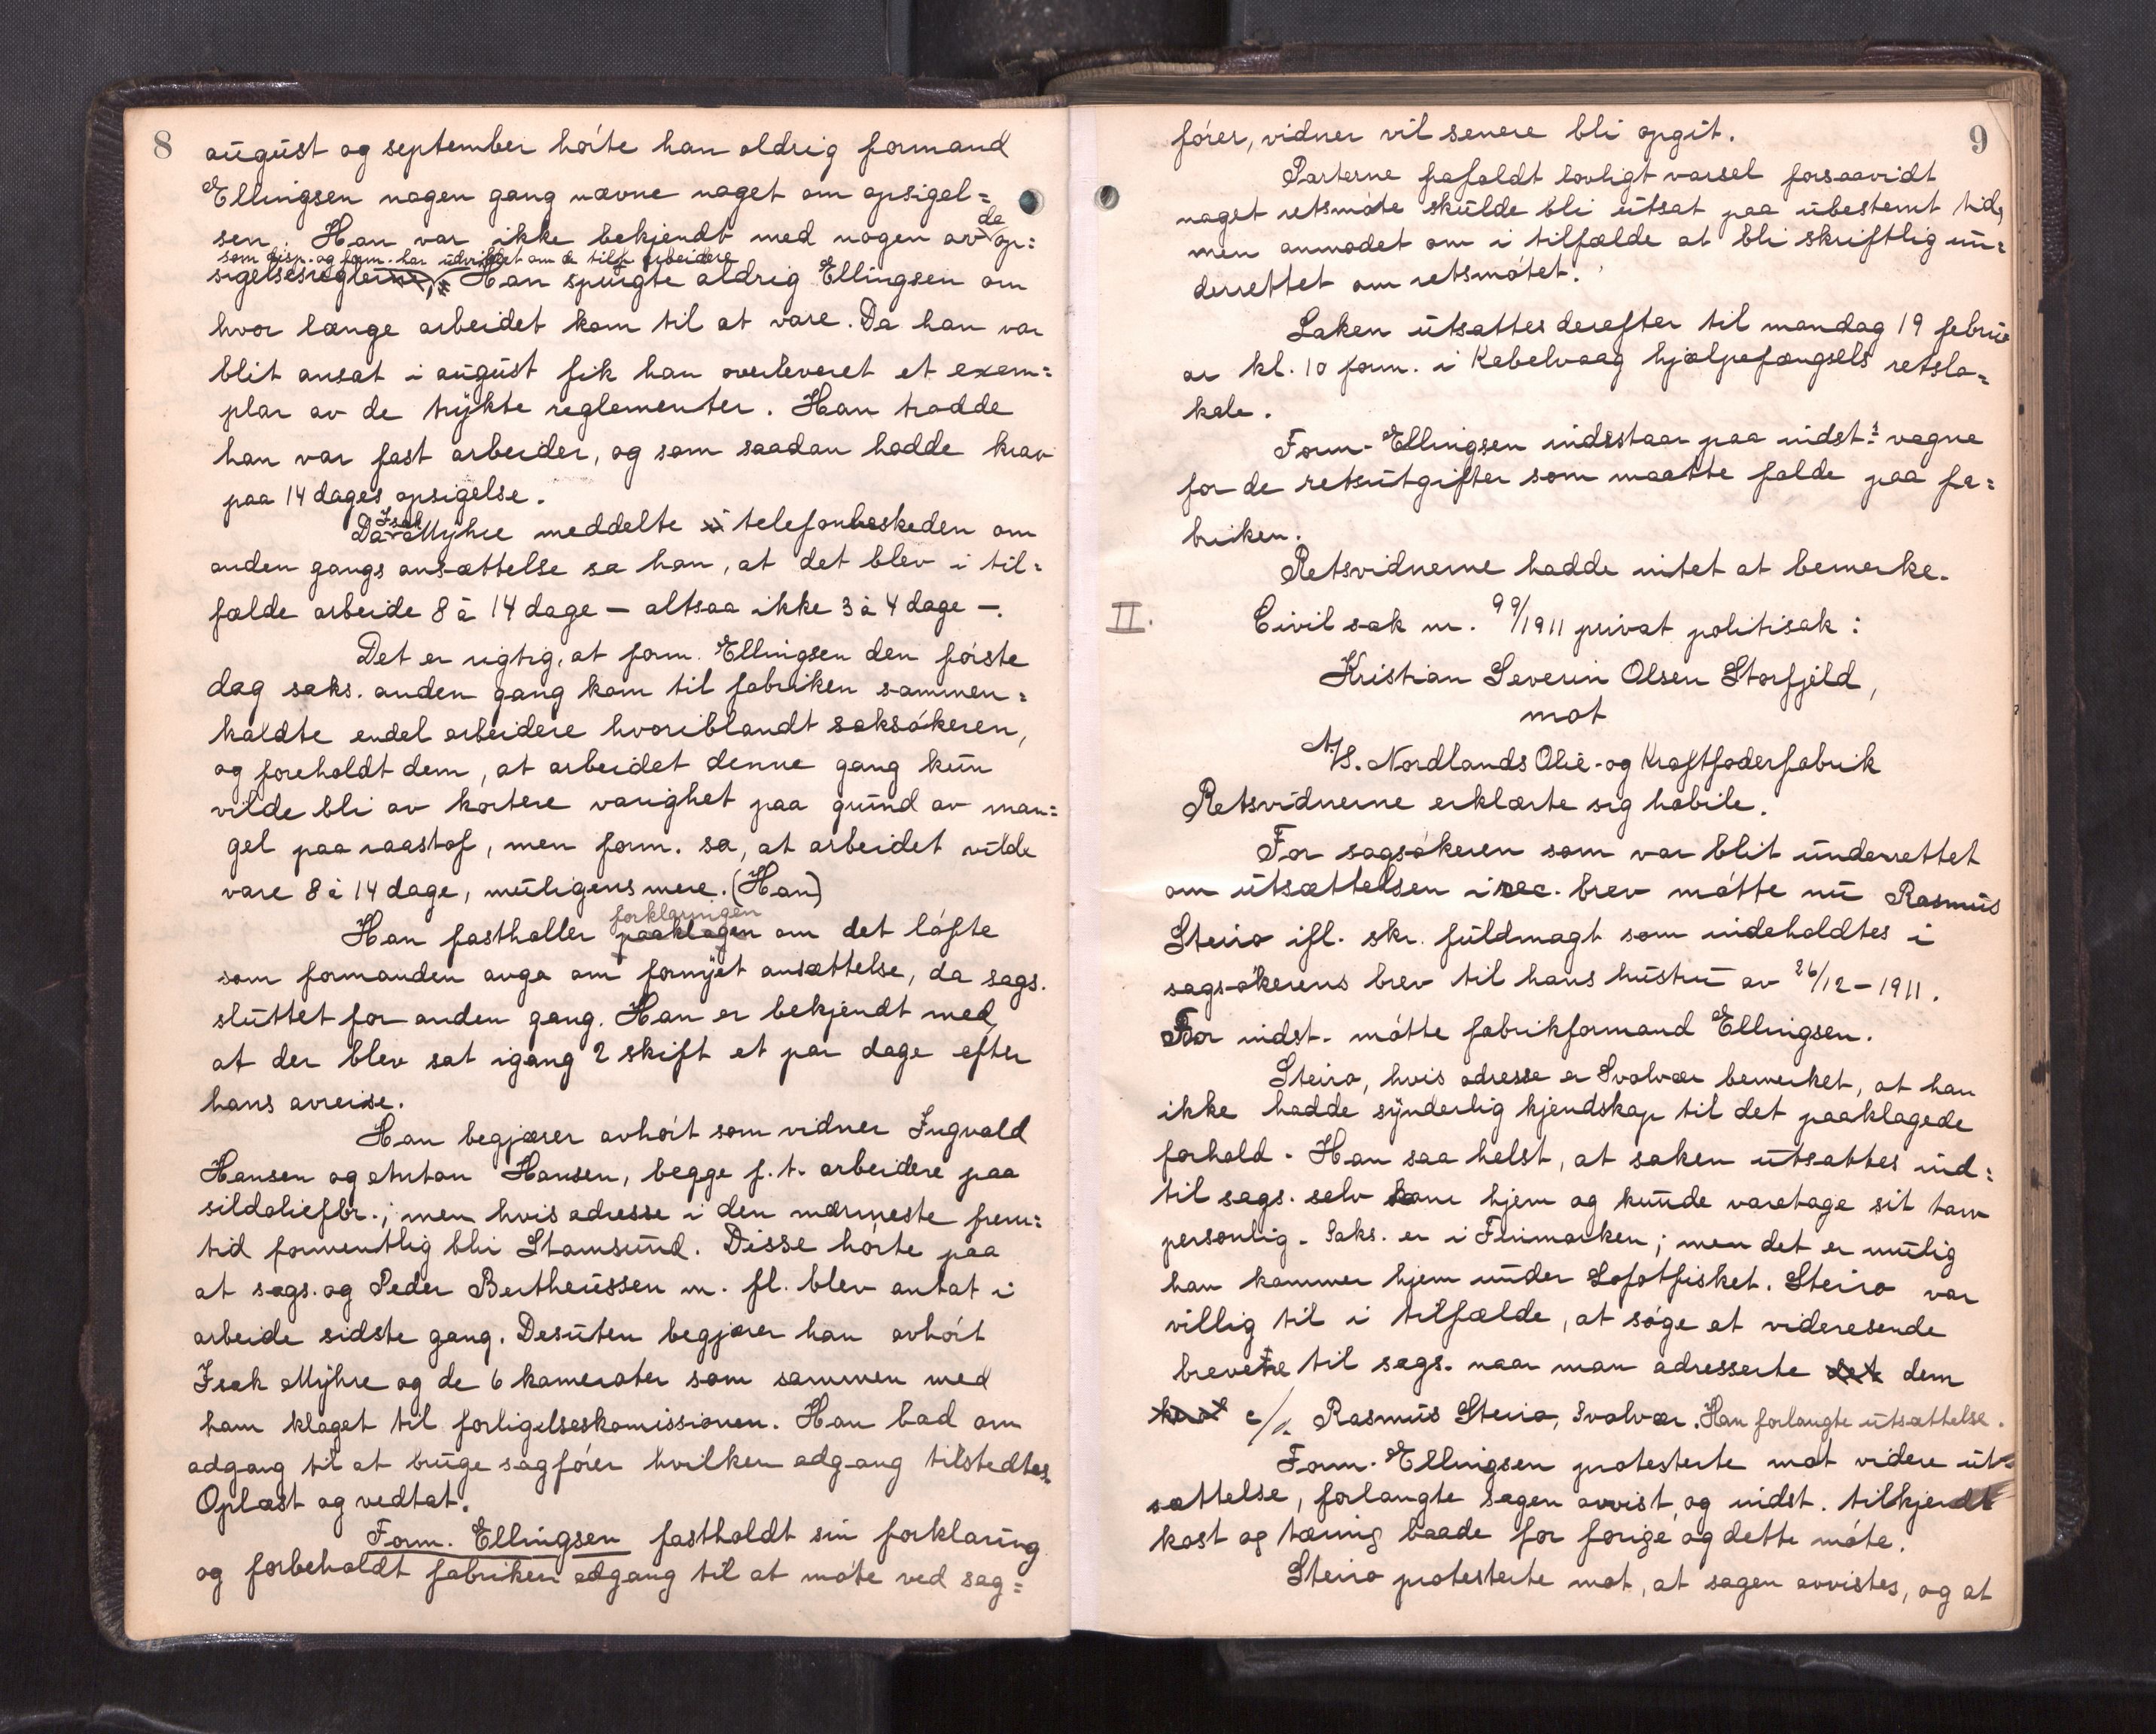 8
august og september hørte han aldrig formand
Ellingsen nogen gang nævne noget om opsigel=
sen. Han var ikke bekjendt med nogen av de op=
som disp. og form. har utviklet om de tilf. arbeidere
sigelsesreglerne, Han spurgte aldrig Ellingsen om
hvor længe arbeidet kom til at vare. Da han var
blit ansat i august fik han overleveret et exem=
plar av de trykte reglementer. Han trodde
han var fast arbeider, og som saadan hadde krav
paa 14 dages opsigelse.
Da Isak Myhre meddelte telefonbeskeden om
anden gangs ansættelse sa han, at det blev i til=
fælde arbeide 8 à 14 dage – altsaa ikke 3 à 4 dage –.
Det er rigtig, at form. Ellingsen den første
dag saks. anden gang kom til fabriken sammen=
kaldte endel arbeidere hvoriblandt saksøkeren,
og foreholdt dem, at arbeidet denne gang kun
vilde bli av kortere varighet paa grund av man=
gel paa raastof, men form. sa, at arbeidet vilde
vare 8 à 14 dage, muligens mere. (Han)
Han fastholler paaklagen forklaringen om det løfte
som formanden avga om fornyet ansættelse, da sags.
sluttet for anden gang. Han er bekjendt med,
at der blev sat igang 2 skift et par dage efter
hans avreise.
Han begjærer avhørt som vidner Ingvald
Hansen og Anton Hansen, begge f.t. arbeidere paa
sildoliefbr.; men hvis adresse i den nærmeste frem=
tid formentlig bli Stamsund. Disse hørte paa
at sags. og Peder Bertheussen m. fl. blev antat i
arbeide sidste gang. Desuten begjærer han avhørt
Isak Myhre og de 6 kamerater som sammen med
ham klaget til forligelseskomissionen. Han bad om
adgang til at bruge sagfører hvilken adgang tilstedtes.
Oplæst og vedtat.
Form. Ellingsen fastholdt sin forklaring
og forbeholdt fabriken adgang til at møte ved sag=
9
fører, vidner vil senere bli opgit.
Parterne frafaldt lovligt varsel forsaavidt
noget retsmøte skulde bli utsat paa ubestemt tid,
men anmodet om i tilfælde at bli skriftlig un=
derrettet om retsmøtet.
Saken utsattes derefter til mandag 19 febru
ar kl. 10 form. i Kabelvaag hjælpefængsels retslo=
kale.
Form. Ellingsen indestaar paa indst.s vegne
for de retsutgifter som maatte falde paa fa=
briken.
Retsvidnerne hadde intet at bemerke.
II.
Civil sak nr. 99/1911 privat politisak:
Kristian Severin Olsen Storfjeld,
mot
A/S. Nordlands Olie- og Kraftfoderfabrik
Retsvidnerne erklærte sig habile.
For sagsøkeren som var blit underrettet
om utsættelsen i rec. brev møtte nu Rasmus
Steiro ifl. skr. fuldmagt som indeholdtes i
sagsøkerens brev til hans hustru av 26/12–1911.
For indst. møtte fabrikformand Ellingsen.
Steiro, hvis adresse er Svolvær bemerket, at han
ikke hadde synderlig kjendskap til det paaklagede
forhold. Han saa helst, at saken utsattes ind=
til sags. selv kom hjem og kunde varetage sit tarv
personlig. Saks. er i Finmarken; men det er mulig
han kommer hjem under Lofotfisket. Steiro var
villig til i tilfælde, at søge at videresende
brevene til sags. naar man adresserte det dem
c/o. Rasmus Steiro, Svolvær. Han forlangte utsættelse.
Form. Ellingsen protesterte mot videre ut=
sættelse, forlangte sagen avvist og indst. tilkjendt
kost og tæring baade for forige og dette møte.
Steiro protesterte mot, at sagen avvistes, og at